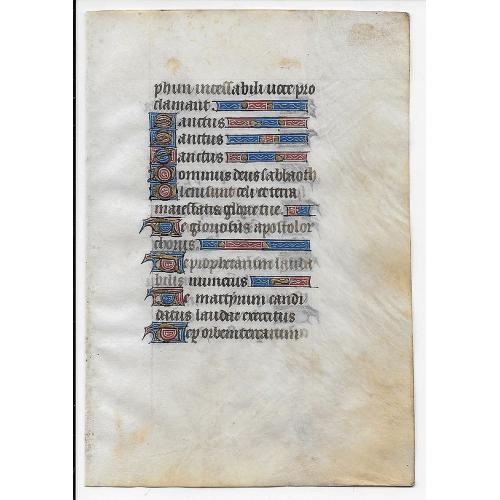 phun incessabili uoce pro
clamant.
Sanctus
Sanctus
Sanctus
Dominus deus sabbaoth
Pleni sunt celi et terra
maiestatis glorie tue.
Te gloriosus apostolor
chorus
Te prophetarum lauda
bilis numerus
Te martyrum candi
datus laudat exercitus
Te per orbem terrarum